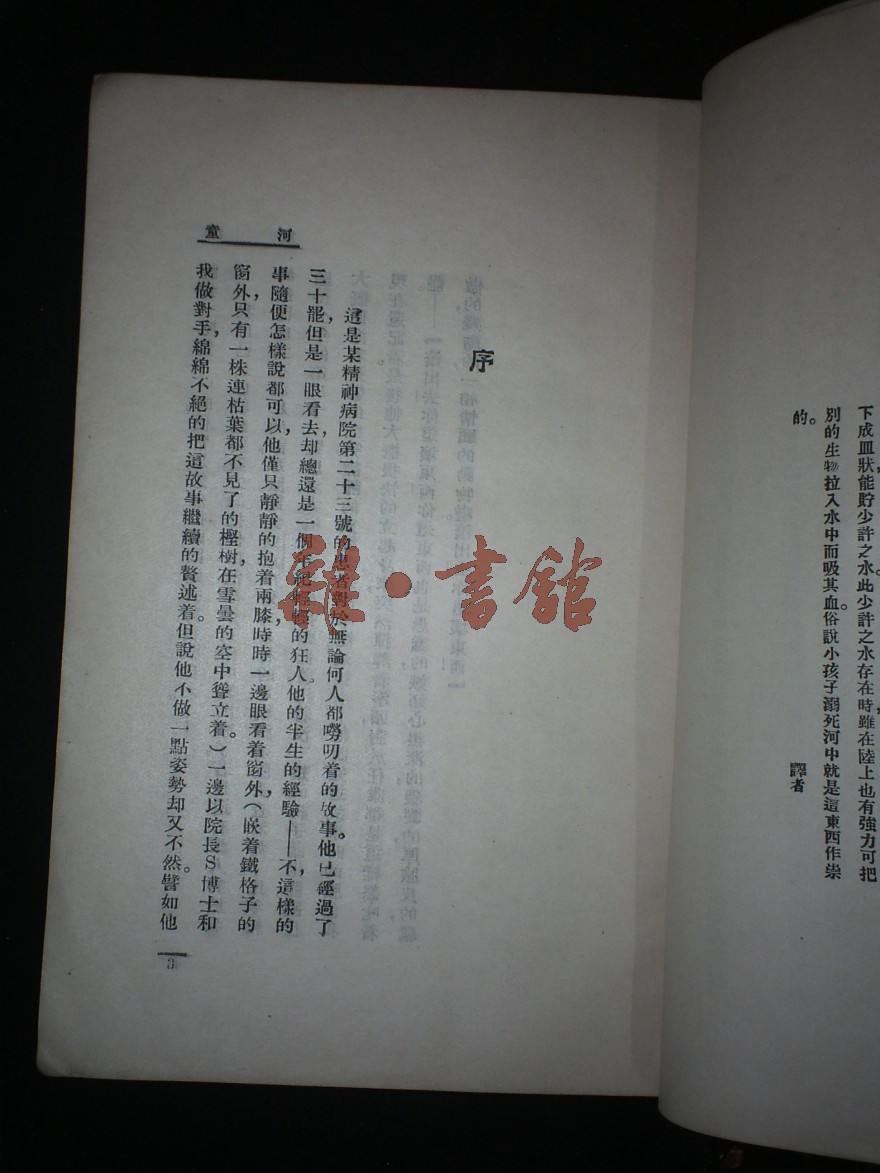 下成皿狀能貯少許之水。此少許之水存在時,雖在陸上也有強力可把
別的生物拉入水中而吸其血。俗說小孩子溺死河中就是這東西作祟
的。
譯者
河童
序
這是某精神病院第二十三號的患者對於無論何人都嘮叨着的故事。他已經過了
三十罷,但是一眼看去却總還是一個年紀輕輕的狂人。他的半生的經驗——不,這樣的
事隨便怎樣說都可以,他僅只靜靜的抱着兩膝,時時一邊眼看着窗外(嵌着鐵格子的
窗外,只有一株連枯葉都不見了的樫樹在雪曇的空中聳立着。)一邊以院長S博士和
我做對手,綿綿不絕的把這故事繼續的贅述着。但說他不做一點姿勢却又不然。譬如他
3
雜·書館